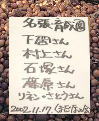 名張・青蓮園
下村さん
村上さん
石塚さん
藤原さん
リネン・さとうさん
2002.11.17